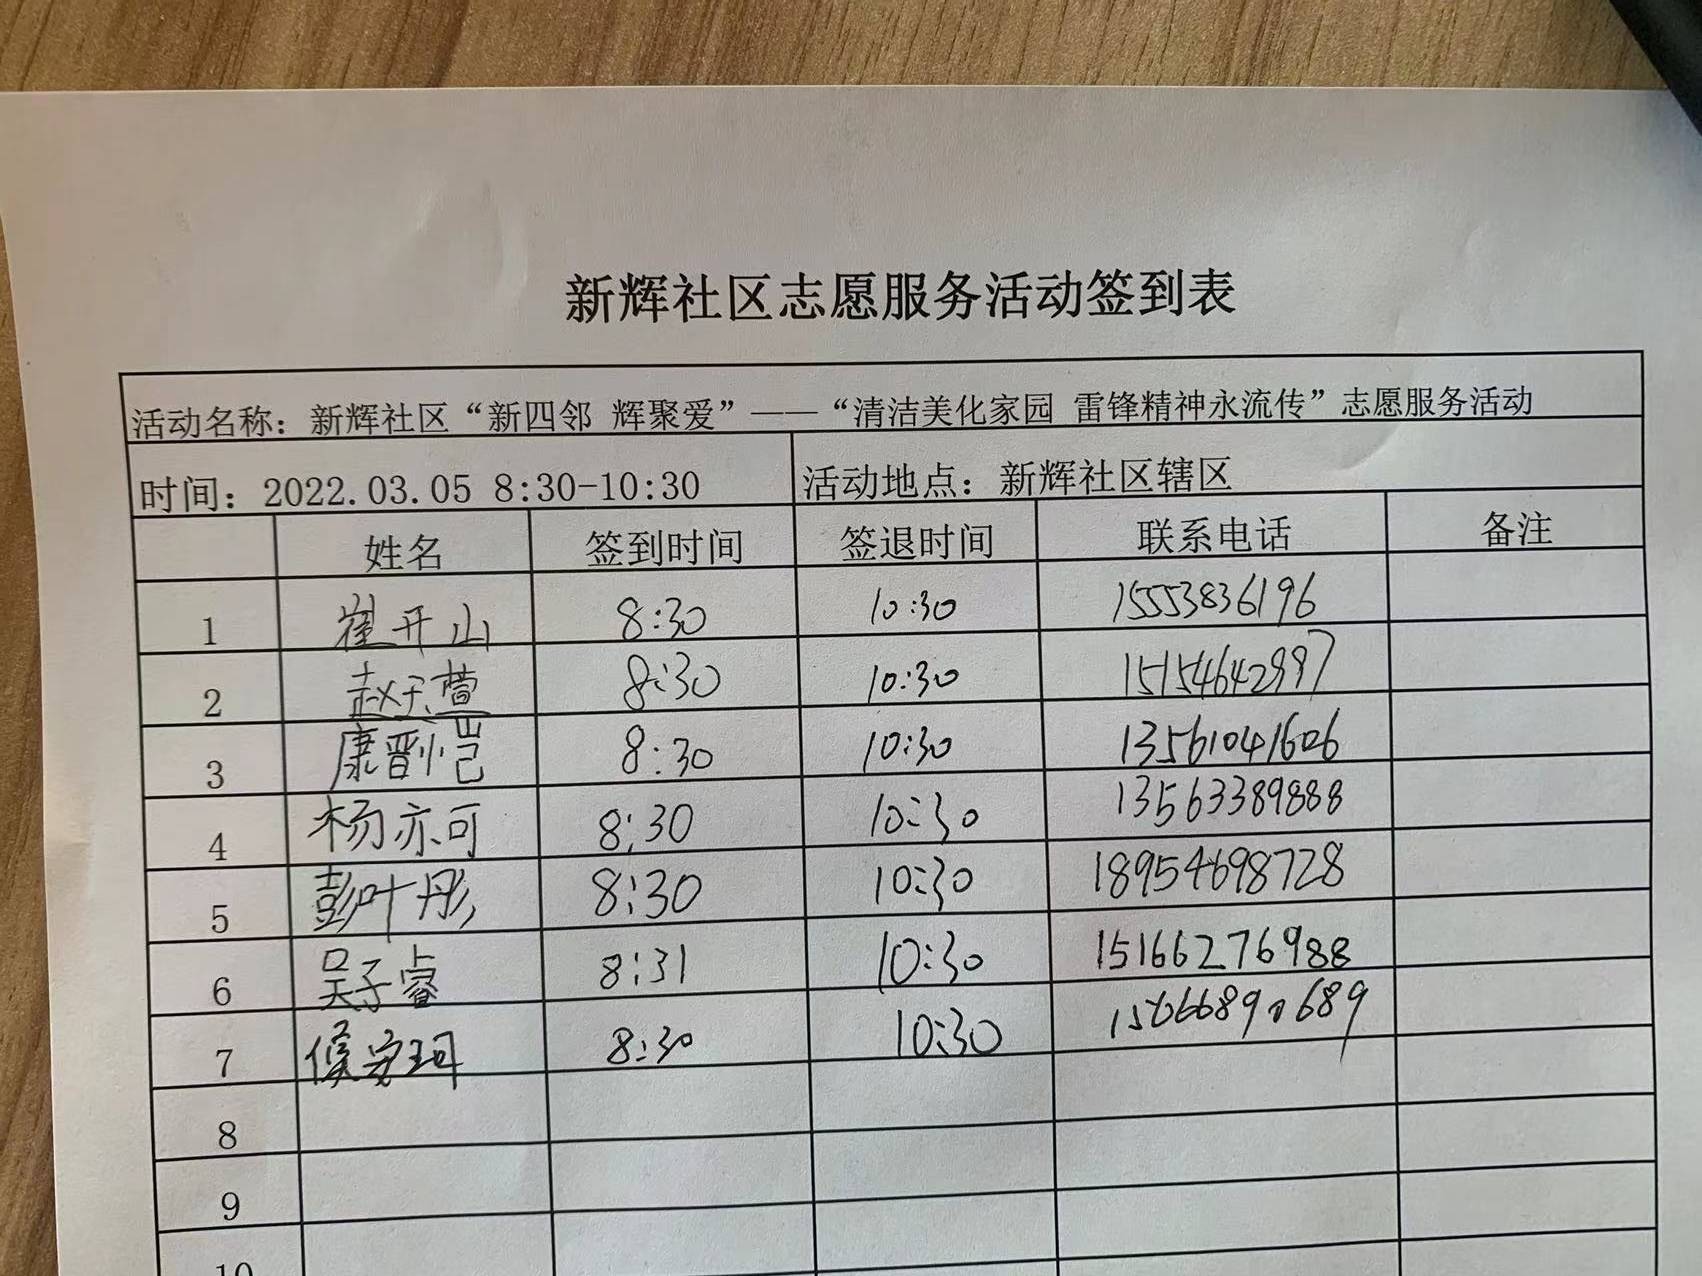 新辉社区志愿服务活动签到表
活动名称：新辉社区“新四邻 辉聚爱”——“清洁美化家园 雷锋精神永流传”志愿服务活动
时间：2022.03.05 8:30-10:30 活动地点：新辉社区辖区
姓名 签到时间 签退时间 联系电话 备注
1 崔开山 8:30 10:30 15553836196
2 赵天萱 8:30 10:30 15154642997
3 康晋恺 8:30 10:30 13561041606
4 杨亦可 8:30 10:30 13563389888
5 彭叶彤 8:30 10:30 18954698728
6 吴子睿 8:31 10:30 15166276988
7 侯安珂 8:30 10:30
8
9
10